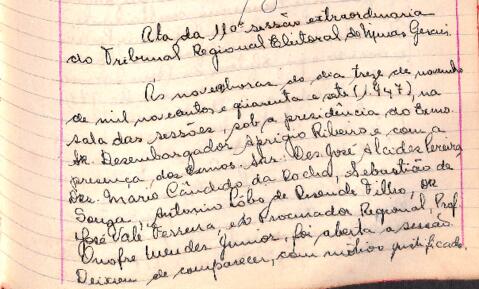 Ata da 110ª sessão extraordinaria
do Tribunal Regional Eleitoral de Minas Gerais.
Ás nove horas do dia treze de novembro
de mil novecentos e quarenta e sete (1.947), na
sala das sessões, sob a presidência do Exmo.
Sr. Desembargador Aprigio Ribeiro e com a
presença dos Exmos. Srs. Des. José Alcides Pereira,
Drs. Mario Cândido da Rocha, Sebastião de
Souza, Antonio Lôbo de Resende Filho, Dr.
José Vale Ferreira, e o Procurador Regional, Prof.
Onofre Mendes Junior, foi aberta a sessão.
Deixou de comparecer, com motivo justificado,